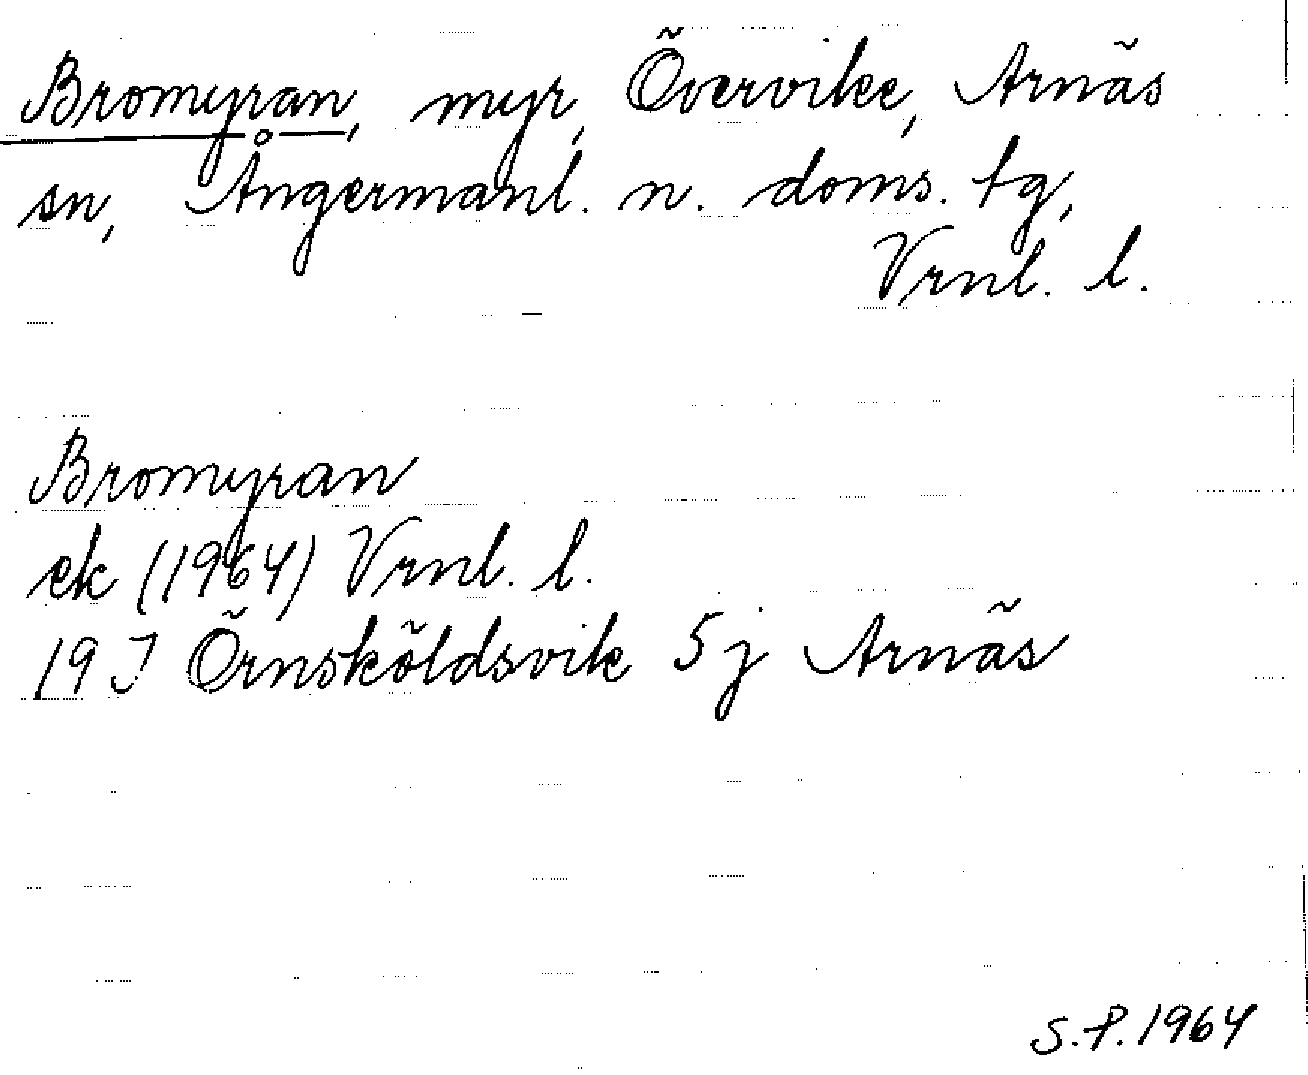 Bromyran, myr, Övervike, Arnäs
sn, Ångermanl. n. doms. tg,
Vrnl. l.
Bromyran
ek (1964) Vrnl. l.
19 J Örnsköldsvik 5 j Arnäs
S.P. 1964